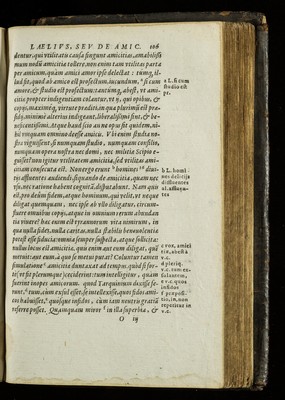 LAELIVS, SEV DE AMIC. 106
dentur, qui vtilitatis causa fingunt amicitias, amabilissi
mum nodū amicitiæ tollere. non enim tam vtilitas parta
per amicum, quàm amici amor ipse delectat: tumq́; il-
lud fit, quod ab amico est profectum, iucundum, si cum
amore, & studio est profectum: tantúmq́; abest, vt ami-
citiæ propter indigentiam colantur, vt ij, qui opibus, &
copijs, maximéq́; virtute præditi, in qua plurimū est præ-
sidij, minimè alterius indigeant, liberalissimi sint, & be-
neficentissimi. Atque haud scio an ne opus sit quidem, ni-
hil vnquam omnino deesse amicis. Vbi enim studia no-
stra viguissent, si nunquam studio, nunquam consilio,
nunquam opera nostra nec domi, nec militiæ Scipio e-
guisset? non igitur vtilitatem amicitia, sed vtilitas ami-
citiam consecuta est. Non ergo erunt homines diui-
tijs affluentes audiendi, si quando de amicitia, quam nec
vsu, nec ratione habent cognitā, disputabunt. Nam quis
est, pro deûm fidem, atque hominum, qui velit, vt neque
diligat quemquam, nec ipse ab vllo diligatur, circum-
fluere omnibus copijs, atque in omnium rerum abundan
tia viuere? hæc enim est tyrannorum vita nimirum, in
qua nulla fides, nulla caritas, nulla stabilis beneuolentiæ
potest esse fiducia: omnia semper suspecta, atque sollicita:
nullus locus est amicitiæ. quis enim aut eum diligat, quē
metuit: aut eum, à quo se metui putat? Coluntur tamen
simulatione amicitiæ duntaxat ad tempus. quòd si for-
tè, vt fit plerunque, ceciderint: tum intelligitur, quàm
fuerint inopes amicorum. quod Tarquinium dixisse fe-
runt, tum, cùm exsul esset, se intellexisse, quos fidos ami-
cos habuisset, quosque infidos, cùm iam neutris gratiā
referre posset. Quamquam miror in illa superbia, &
O iij
a L. si cum
studio est
pr.
b L. homi-
nes delitijs
diffluentes
c vox, amici
d pleriq.
v.c. quos
v.c.